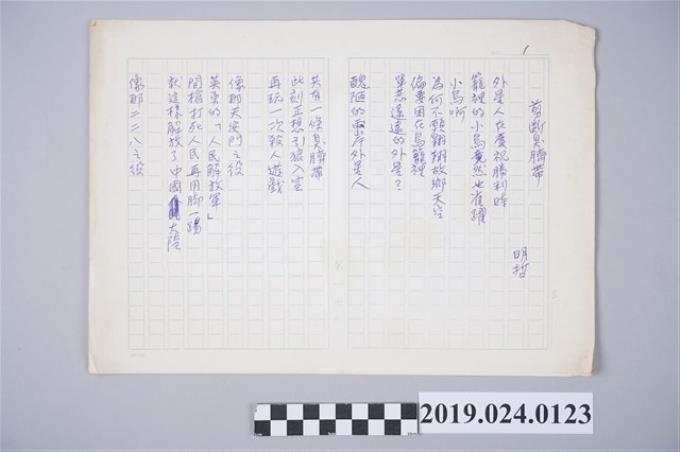 1
剪斷臭臍帶
明哲
外星人在慶祝勝利時
籠裡的小鳥竟然也雀躍
小鳥啊
為何不願翱翔故鄉天空
偏要困在鳥籠裡
單戀遙遠的外星?
醜陋的 外星人
共有一條臭臍帶
此刻正想引狼入室
再玩一次殺人遊戲
像那天安門之役
英勇的「人民解放軍」
開槍打死人民再用腳一踢
就這樣解放了中國大陸
像那二二八之役
2019.024.0123